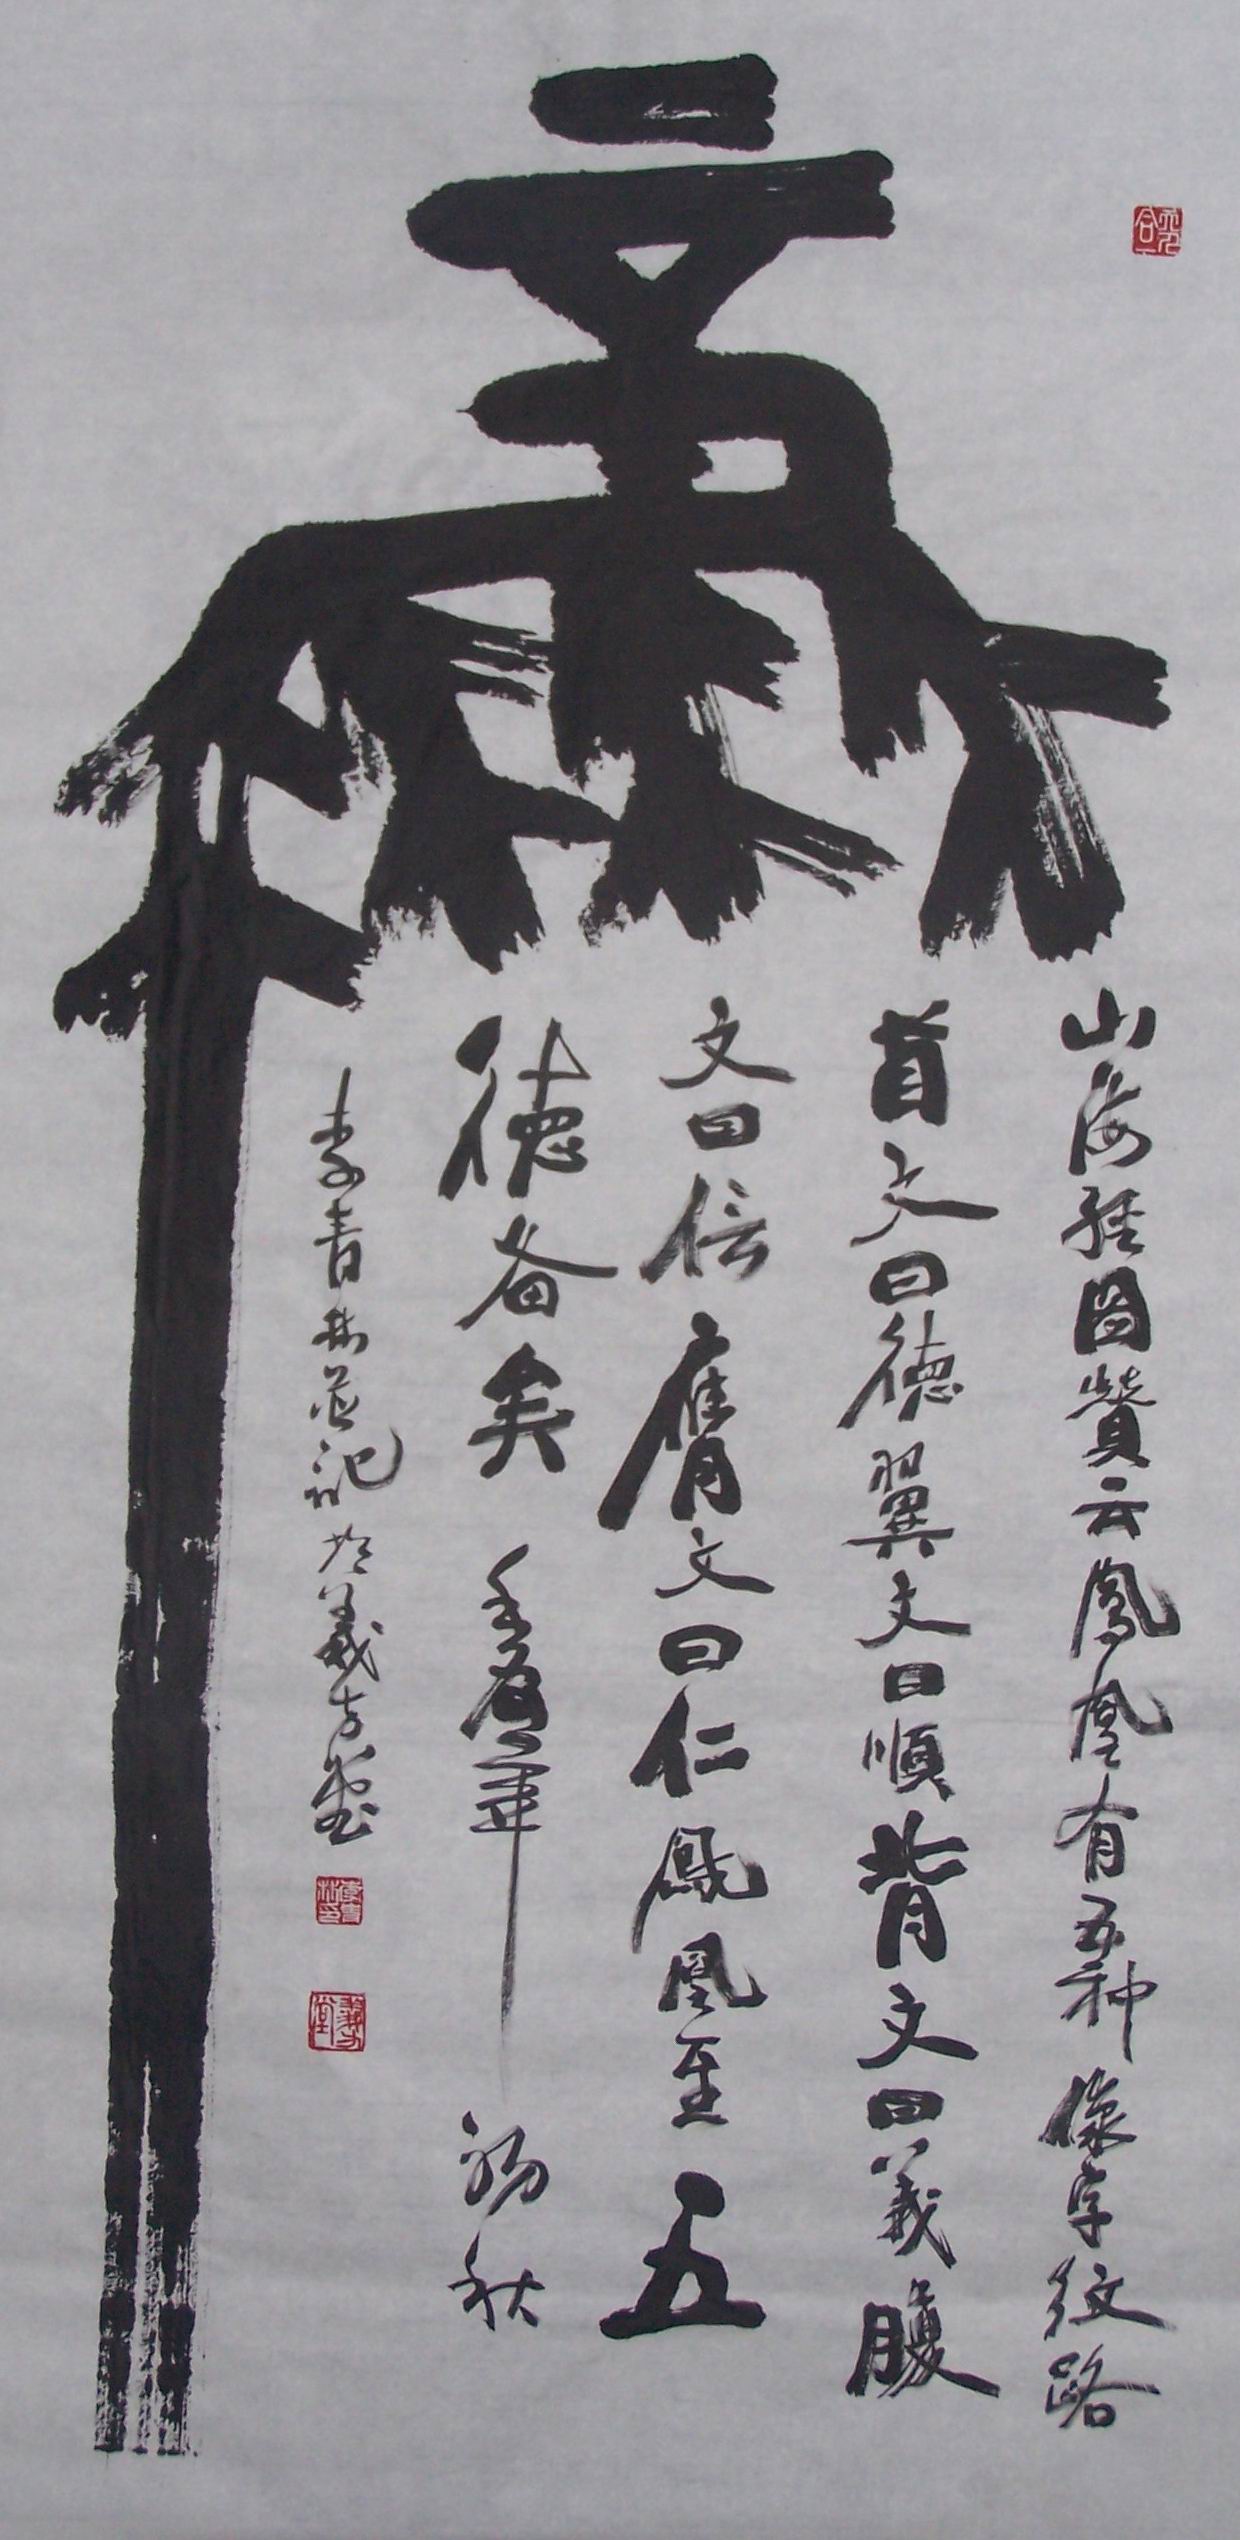 山海经图赞云鳳凰有五种像字纹路
首文曰德翼文曰順背文曰義腹
文曰信膺文曰仁鳳凰至五
德备矣 壬辰年初秋
李青林並记於義方堂